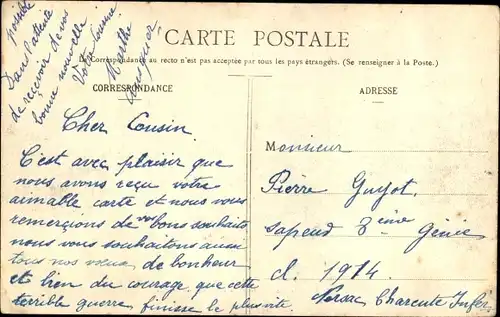 possible
Dans l'attente
de recevoir de vos
bonne nouvelle
Votre Cousine
Marthe
CARTE POSTALE
La Correspondance au recto n'est pas acceptée par tous les pays étrangers. (Se renseigner à la Poste.)
CORRESPONDANCE
Cher Cousin.
C'est avec plaisir que
nous avons reçu votre
aimable carte et nous vous
remerçions de vos bons souhaits
nous vous souhaitons aussi
tous nos vœux de bonheur
et bien du courage que cette
terrible guerre finisse le plus vite.
ADRESSE
Monsieur
Pierre Guyot.
sapeud 8ème Génie
cl. 1914
Nersac Charente Infer